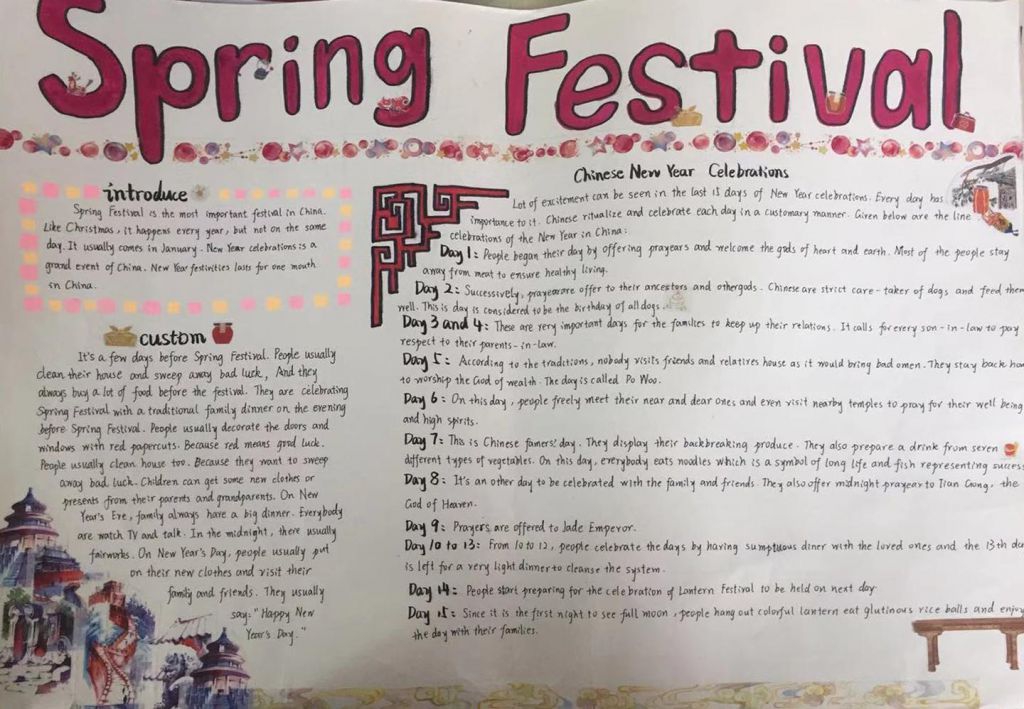 Spring Festival
introduce
Spring Festival is the most important festival in China.
Like Christmas, it happens every year, but not on the same
day. It usually comes in January. New Year celebrations is a
grand event of China. New Year festivities lasts for one mouth
in China.
custom
It's a few days before Spring Festival. People usually
clean their house and sweep away bad luck, And they
always buy a lot of food before the festival. They are celebrating
Spring Festival with a traditional family dinner on the evening
before Spring Festival. People usually decorate the doors and
windows with red papercuts. Because red means good luck.
People usually clean house too. Because they want to sweep
away bad luck. Children can get some new clothes or
presents from their parents and grandparents. On New
Year's Eve, family always have a big dinner. Everybody
are watch TV and talk. In the midnight, there usually
fairworks. On New Year's Day, people usually put
on their new clothes and visit their
family and friends. They usually
say: "Happy New
Year's Day."
Chinese New Year Celebrations
Lot of excitement can be seen in the last 15 days of New Year celebrations. Every day has
importance to it. Chinese ritualize and celebrate each day in a customary manner. Given below are the line
celebrations of the New Year in China:
Day 1: People began their day by offering prayears and welcome the gods of heart and earth. Most of the people stay
away from meat to ensure healthy living.
Day 2: Successively, prayear are offer to their ancestors and othergods. Chinese are strict care-taker of dogs and feed them
well. This is day is considered to be the birthday of all dogs.
Day 3 and 4: These are very important days for the families to keep up their relations. It calls for every son-in-law to pay
respect to their parents-in-law.
Day 5: According to the traditions, nobody visits friends and relatives house as it would bring bad omen. They stay back ho
to worship the God of wealth. The day is called Po Woo.
Day 6: On this day, people freely meet their near and dear ones and even visit nearby temples to pray for their well being
and high spirits.
Day 7: This is Chinese famers' day. They display their backbreaking produce. They also prepare a drink from seven
different types of vegetables. On this day, everybody eats noodles which is a symbol of long life and fish representing success
Day 8: It's an other day to be celebrated with the family and friends. They also offer midnight prayear to Tian Gong, the
God of Heaven.
Day 9: Prayers are offered to Jade Emperor.
Day 10 to 13: From 10 to 12, people celebrate the days by having sumptuous diner with the loved ones and the 13th da
is left for a very light dinner to cleanse the system.
Day 14: People start preparing for the celebration of Lantern Festival to be held on next day
Day 15: Since it is the first night to see full moon, people hang out colorful lantern eat glutinous rice balls and enjoy
the day with their families.